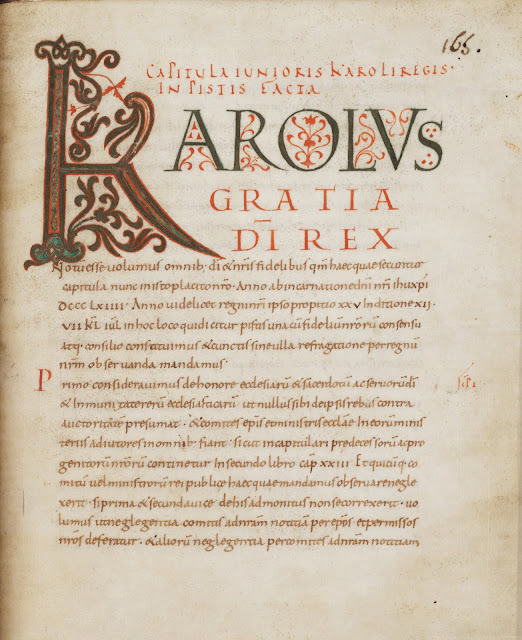 165.
CAPITULA IUNIORIS KAROLI REGIS·
IN PISTIS FACTA
KAROLVS
GRATIA
DĪ REX
Notū esse uolumus omnib; dī & nr̄is fidelibus qm̄ haec quae secuntur
capitula nunc in isto placito nr̄o· Anno ab incarnatione dnī nr̄i ihu xp̄i
DCCC LXIIII· Anno uidelicet regni nr̄i ipso propitio xxv Inditione XII·
VII KL̄ IUL̄ in hoc loco qui dicitur pistis una cū fideliū nr̄orū consensu
atq; consilio constituimus & cunctis sine ulla refragatione per regnū
nr̄m obseruanda mandamus·
Primo consideravimus de honore ecclesiarū & sacerdotū ac seruorū dī
& Inmunitate rerū ecclesiasticarū ut nullus sibi de ipsis rebus contra
auctoritatē presumat· & comites ep̄is et ministris ecclae In eorū minis
teriis adiutores in omnib; fiant· sicut in capitulari predecessorū ac pro
genitorū nr̄orū continetur In secundo libro cap̄ XXIII Et quicūq; co
mitū uel ministrorū rei publicę haec quae mandamus obseruare negle
xerit· si prima & secunda uice de his admonitus non se correxerit· uo
lumus ut neglegentia comitis ad nr̄am notitiā per ep̄os et per missos
nr̄os deferatur· & aliorū neglegentia per comites ad nr̄am notitiam